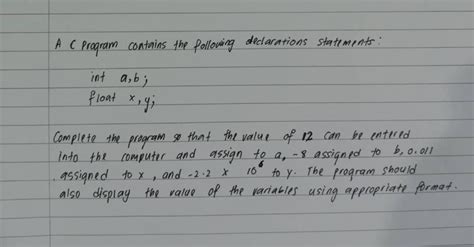 A C program contains the following declarations statements:
int a,b;
float x,y;
Complete the program so that the value of 12 can be entered
Into the computer and assign to a, -8 assigned to b, 0.011
assigned to x, and -2.2 x 10⁶ to y. The program should
also display the value of the variables using appropriate format.